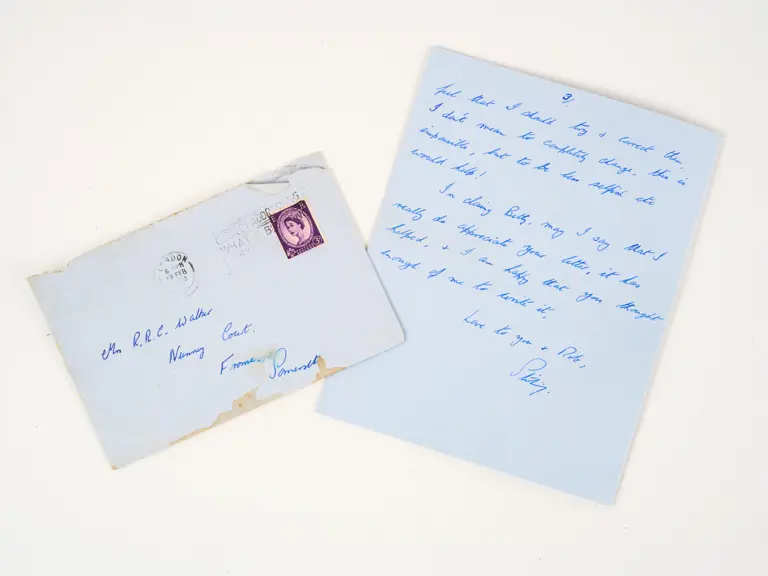 LONDON
6 PM
19 FEB
WHA
Mrs R.R.C. Walker
Nunney Court.
Frome.
Somerset
3/.
feel that I should try & correct them.
I don't mean to completely change, this is
impossible, but to be less selfish etc
would help!
In closing Betty, may I say that I
really do appreciate your letter, it has
helped, & I am happy that you thought
enough of me to write it.
Love to you & Rob,